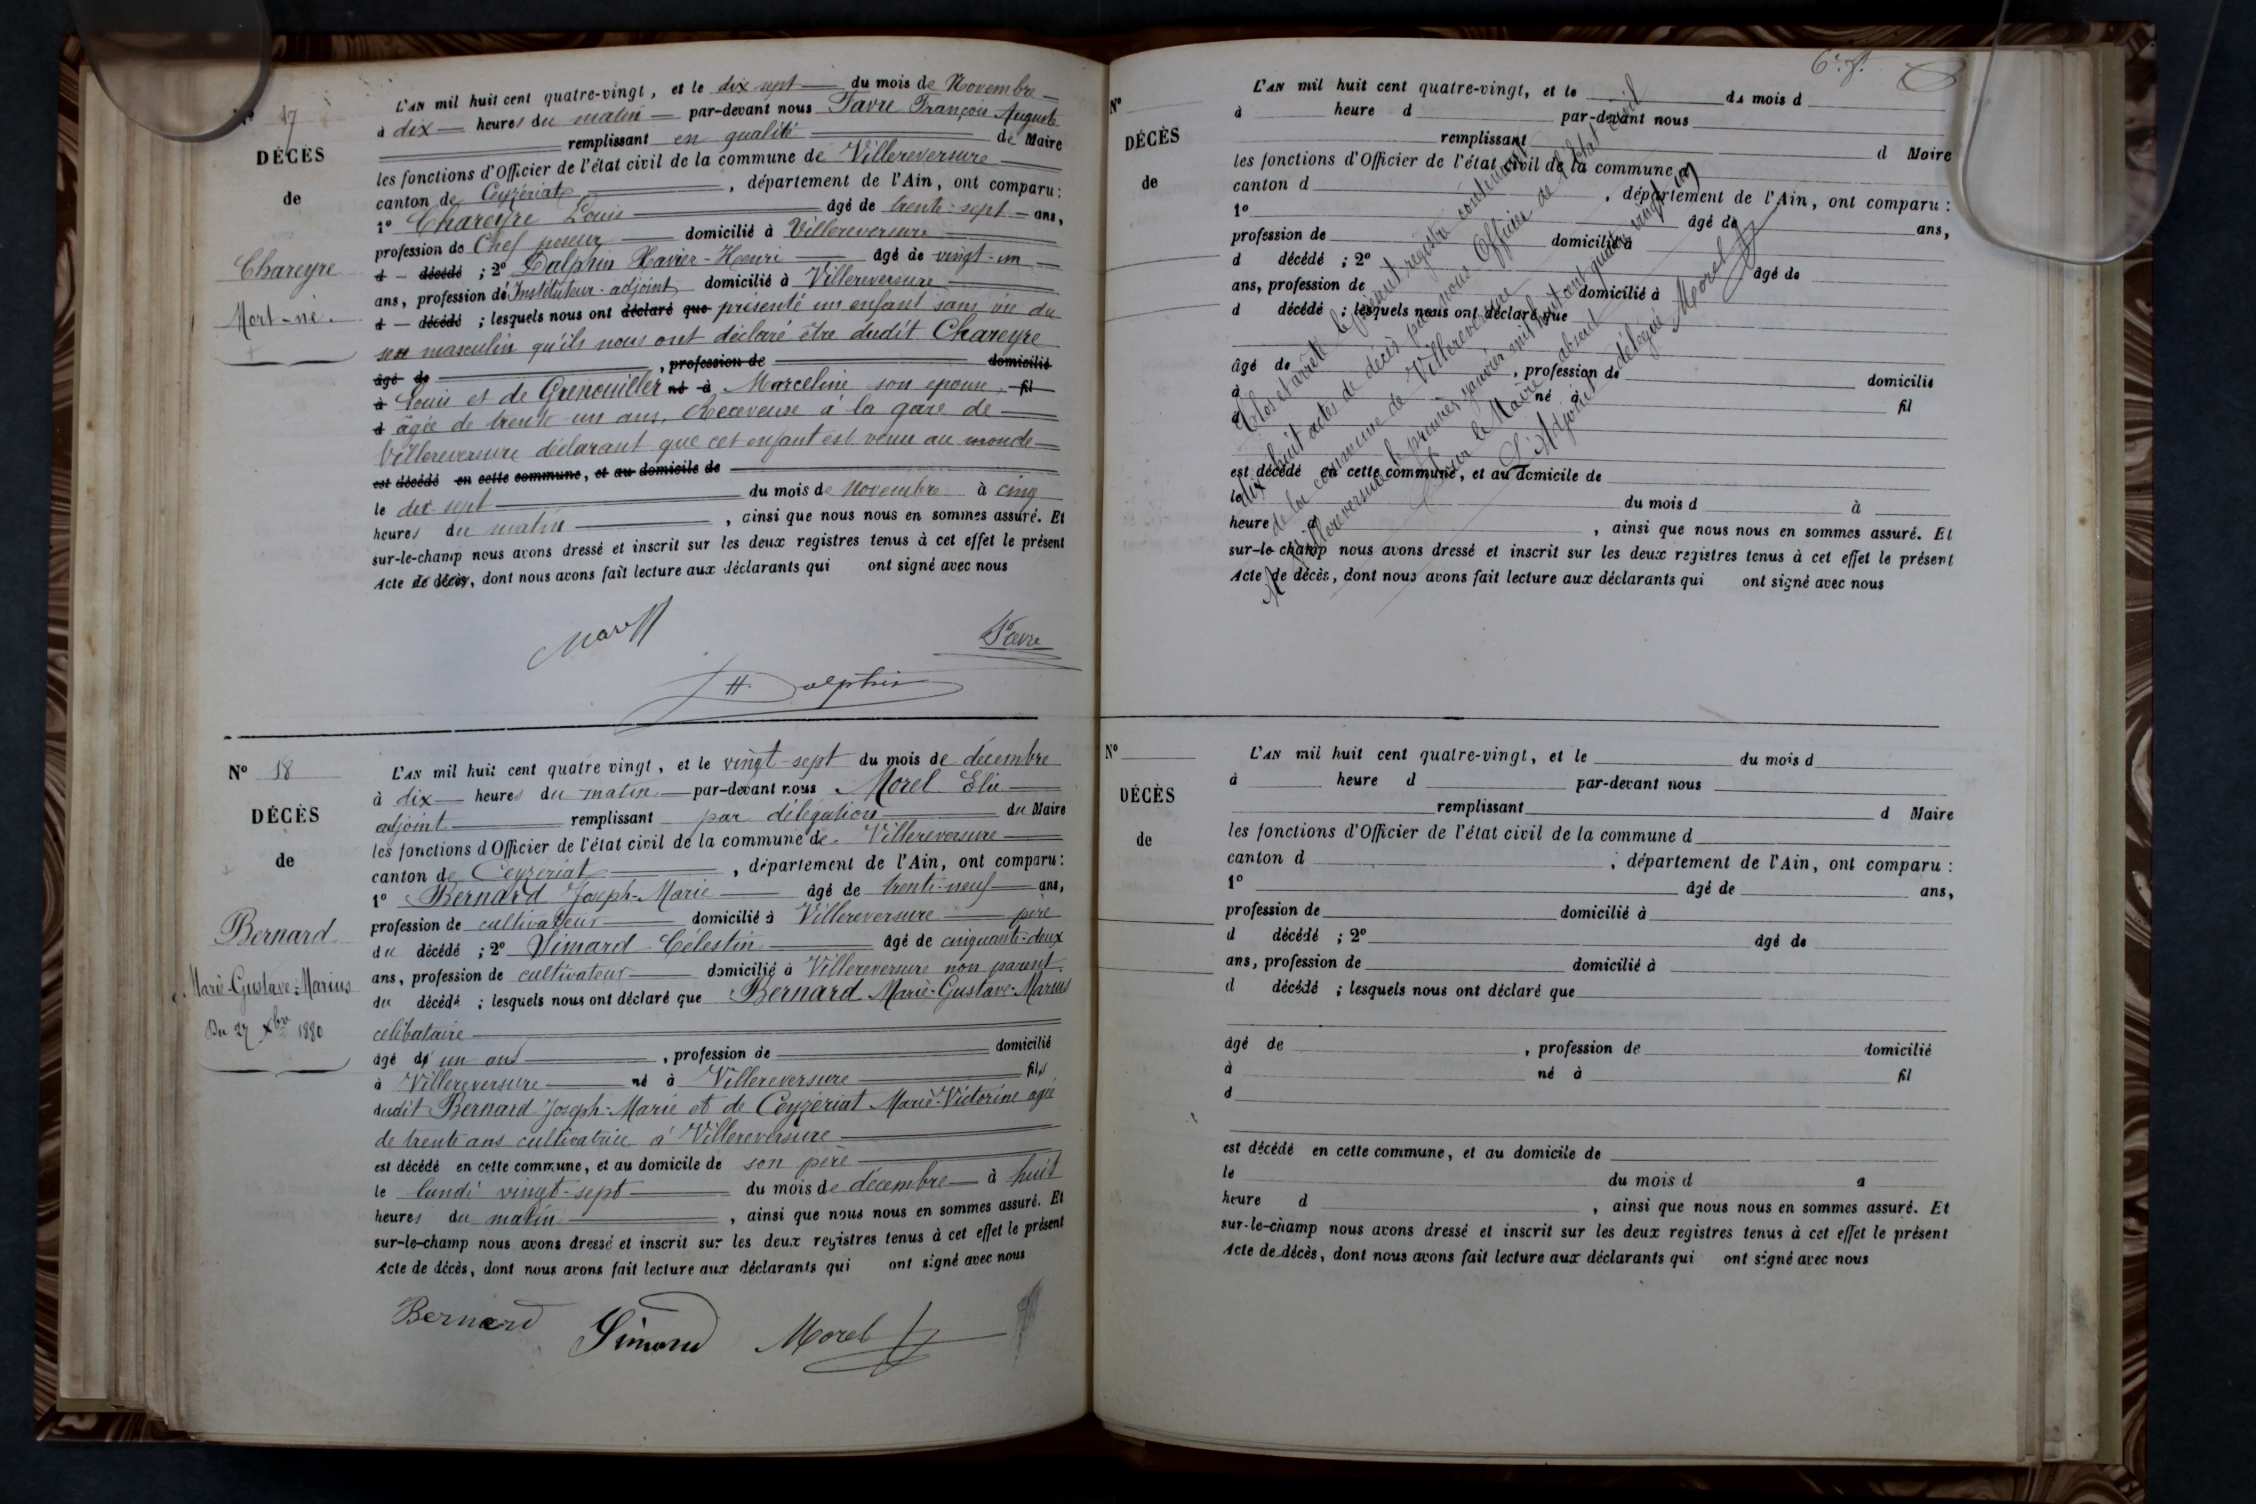 Nº 17
DÉCÈS
de
Chareyre
Mort-né.
L'AN mil huit cent quatre-vingt, et le dix sept du mois de Novembre
à dix heures du matin par-devant nous Favre François Auguste
remplissant en qualité de Maire
les fonctions d'Officier de l'état civil de la commune de Villereversure
canton de Ceyzériat, département de l'Ain, ont comparu:
1º Chareyre Louis âgé de trente-sept ans,
profession de Chef poseur domicilié à Villereversure
d décédé ; 2º Dalphin Xavier-Henri âgé de vingt-un
ans, profession d'Instituteur-adjoint domicilié à Villereversure
d décédé ; lesquels nous ont déclaré que présenté un enfant sans vie du
sexe masculin qu'ils nous ont déclaré être dudit Chareyre
âgé de , profession de domicilié
à Louis et de Grenouiller né à Marceline son épouse, fil
d âgée de trente un ans, Receveuse à la gare de
Villereversure déclarant que cet enfant est venu au monde
est décédé en cette commune, et au domicile de
le dix sept du mois de Novembre à cinq
heures du matin , ainsi que nous nous en sommes assuré. Et
sur-le-champ nous avons dressé et inscrit sur les deux registres tenus à cet effet le présent
Acte de décès, dont nous avons fait lecture aux déclarants qui ont signé avec nous
Favre
H. Dalphin
Nº 18
DÉCÈS
de
Bernard
Marie-Gustave-Marius
Du 27 Xbre 1880
L'AN mil huit cent quatre vingt, et le vingt-sept du mois de décembre
à dix heures du matin par-devant nous Morel Elie
adjoint remplissant par délégation du Maire
les fonctions d'Officier de l'état civil de la commune de Villereversure
canton de Ceyzériat , département de l'Ain, ont comparu:
1º Bernard Joseph-Marie âgé de trente-neuf ans,
profession de cultivateur domicilié à Villereversure père
du décédé ; 2º Simard Célestin âgé de cinquante-deux
ans, profession de cultivateur domicilié à Villereversure non parent
du décédé ; lesquels nous ont déclaré que Bernard Marie-Gustave-Marius
célibataire
âgé d' un ans , profession de domicilié
à Villereversure né à Villereversure fils
dudit Bernard Joseph-Marie et de Ceyzériat Marie-Victorine agée
de trente ans cultivatrice à Villereversure
est décédé en cette commune, et au domicile de son père
le lundi vingt-sept du mois de décembre à huit
heures du matin , ainsi que nous nous en sommes assuré. Et
sur-le-champ nous avons dressé et inscrit sur les deux registres tenus à cet effet le présent
Acte de décès, dont nous avons fait lecture aux déclarants qui ont signé avec nous
Bernard Simond Morel
Nº
DÉCÈS
de
L'AN mil huit cent quatre-vingt, et le du mois d
à heure d par-devant nous
remplissant d Maire
les fonctions d'Officier de l'état civil de la commune d
canton d , département de l'Ain, ont comparu :
1º âgé de ans,
profession de domicilié à
d décédé ; 2º âgé de
ans, profession de domicilié à
d décédé ; lesquels nous ont déclaré que
âgé de , profession de domicilié
à né à fil
d
est décédé en cette commune, et au domicile de
le du mois d à
heure d , ainsi que nous nous en sommes assuré. Et
sur-le-champ nous avons dressé et inscrit sur les deux registres tenus à cet effet le présent
Acte de décès, dont nous avons fait lecture aux déclarants qui ont signé avec nous
Clos et arrêté le présent registre contenant
dix huit actes de décès par nous Officier de l'état civil
de la commune de Villereversure
A Villereversure le premier janvier mil huit cent quatre vingt un
Pour le Maire absent
L'Adjoint délégué Morel
Nº
DÉCÈS
de
L'AN mil huit cent quatre-vingt, et le du mois d
à heure d par-devant nous
remplissant d Maire
les fonctions d'Officier de l'état civil de la commune d
canton d , département de l'Ain, ont comparu :
1º âgé de ans,
profession de domicilié à
d décédé ; 2º âgé de
ans, profession de domicilié à
d décédé ; lesquels nous ont déclaré que
âgé de , profession de domicilié
à né à fil
d
est décédé en cette commune, et au domicile de
le du mois d à
heure d , ainsi que nous nous en sommes assuré. Et
sur-le-champ nous avons dressé et inscrit sur les deux registres tenus à cet effet le présent
Acte de décès, dont nous avons fait lecture aux déclarants qui ont signé avec nous